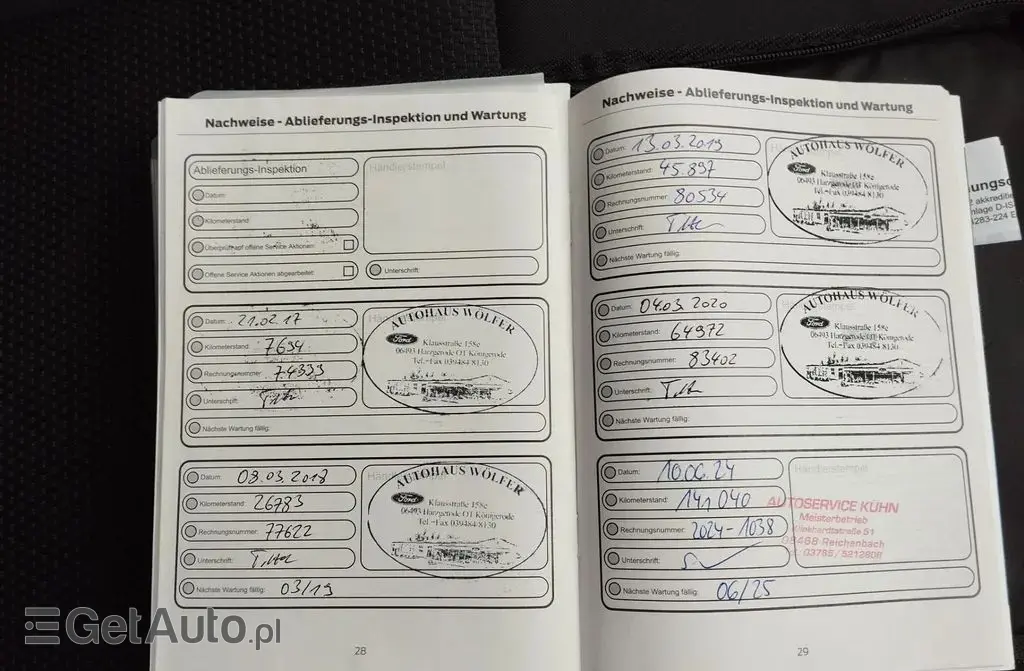 Nachweise - Ablieferungs-Inspektion und Wartung
Ablieferungs-Inspektion
Händlerstempel
Datum:
Kilometerstand
Überprüft auf offene Service Aktionen:
Offene Service Aktionen abgearbeitet:
Unterschrift:
Datum: 21.02.17
Kilometerstand: 7634
Rechnungsnummer: 74333
Unterschrift:
Nächste Wartung fällig:
AUTOHAUS WÖLFER
Ford
Klausstraße 158c
06493 Harzgerode OT Königerode
Tel.-Fax 039484 8130
Datum: 08.03.2018
Kilometerstand: 26783
Rechnungsnummer: 77622
Unterschrift:
Nächste Wartung fällig: 03/19
AUTOHAUS WÖLFER
Ford
Klausstraße 158c
06493 Harzgerode OT Königerode
Tel.-Fax 039484 8130
28
Nachweise - Ablieferungs-Inspektion und Wartung
Datum: 13.03.2019
Kilometerstand: 45.897
Rechnungsnummer: 80534
Unterschrift:
Nächste Wartung fällig:
AUTOHAUS WÖLFER
Ford
Klausstraße 158c
06493 Harzgerode OT Königerode
Tel.-Fax 039484 8130
Datum: 04.03.2020
Kilometerstand: 64972
Rechnungsnummer: 83402
Unterschrift:
Nächste Wartung fällig:
AUTOHAUS WÖLFER
Ford
Klausstraße 158c
06493 Harzgerode OT Königerode
Tel.-Fax 039484 8130
Datum: 10.06.24
Kilometerstand: 141 040
Rechnungsnummer: 2024-1038
Unterschrift:
Nächste Wartung fällig: 06/25
Händlerstempel
AUTOSERVICE KÜHN
Meisterbetrieb
08468 Reichenbach
03785 / 5212808
29
GetAuto.pl